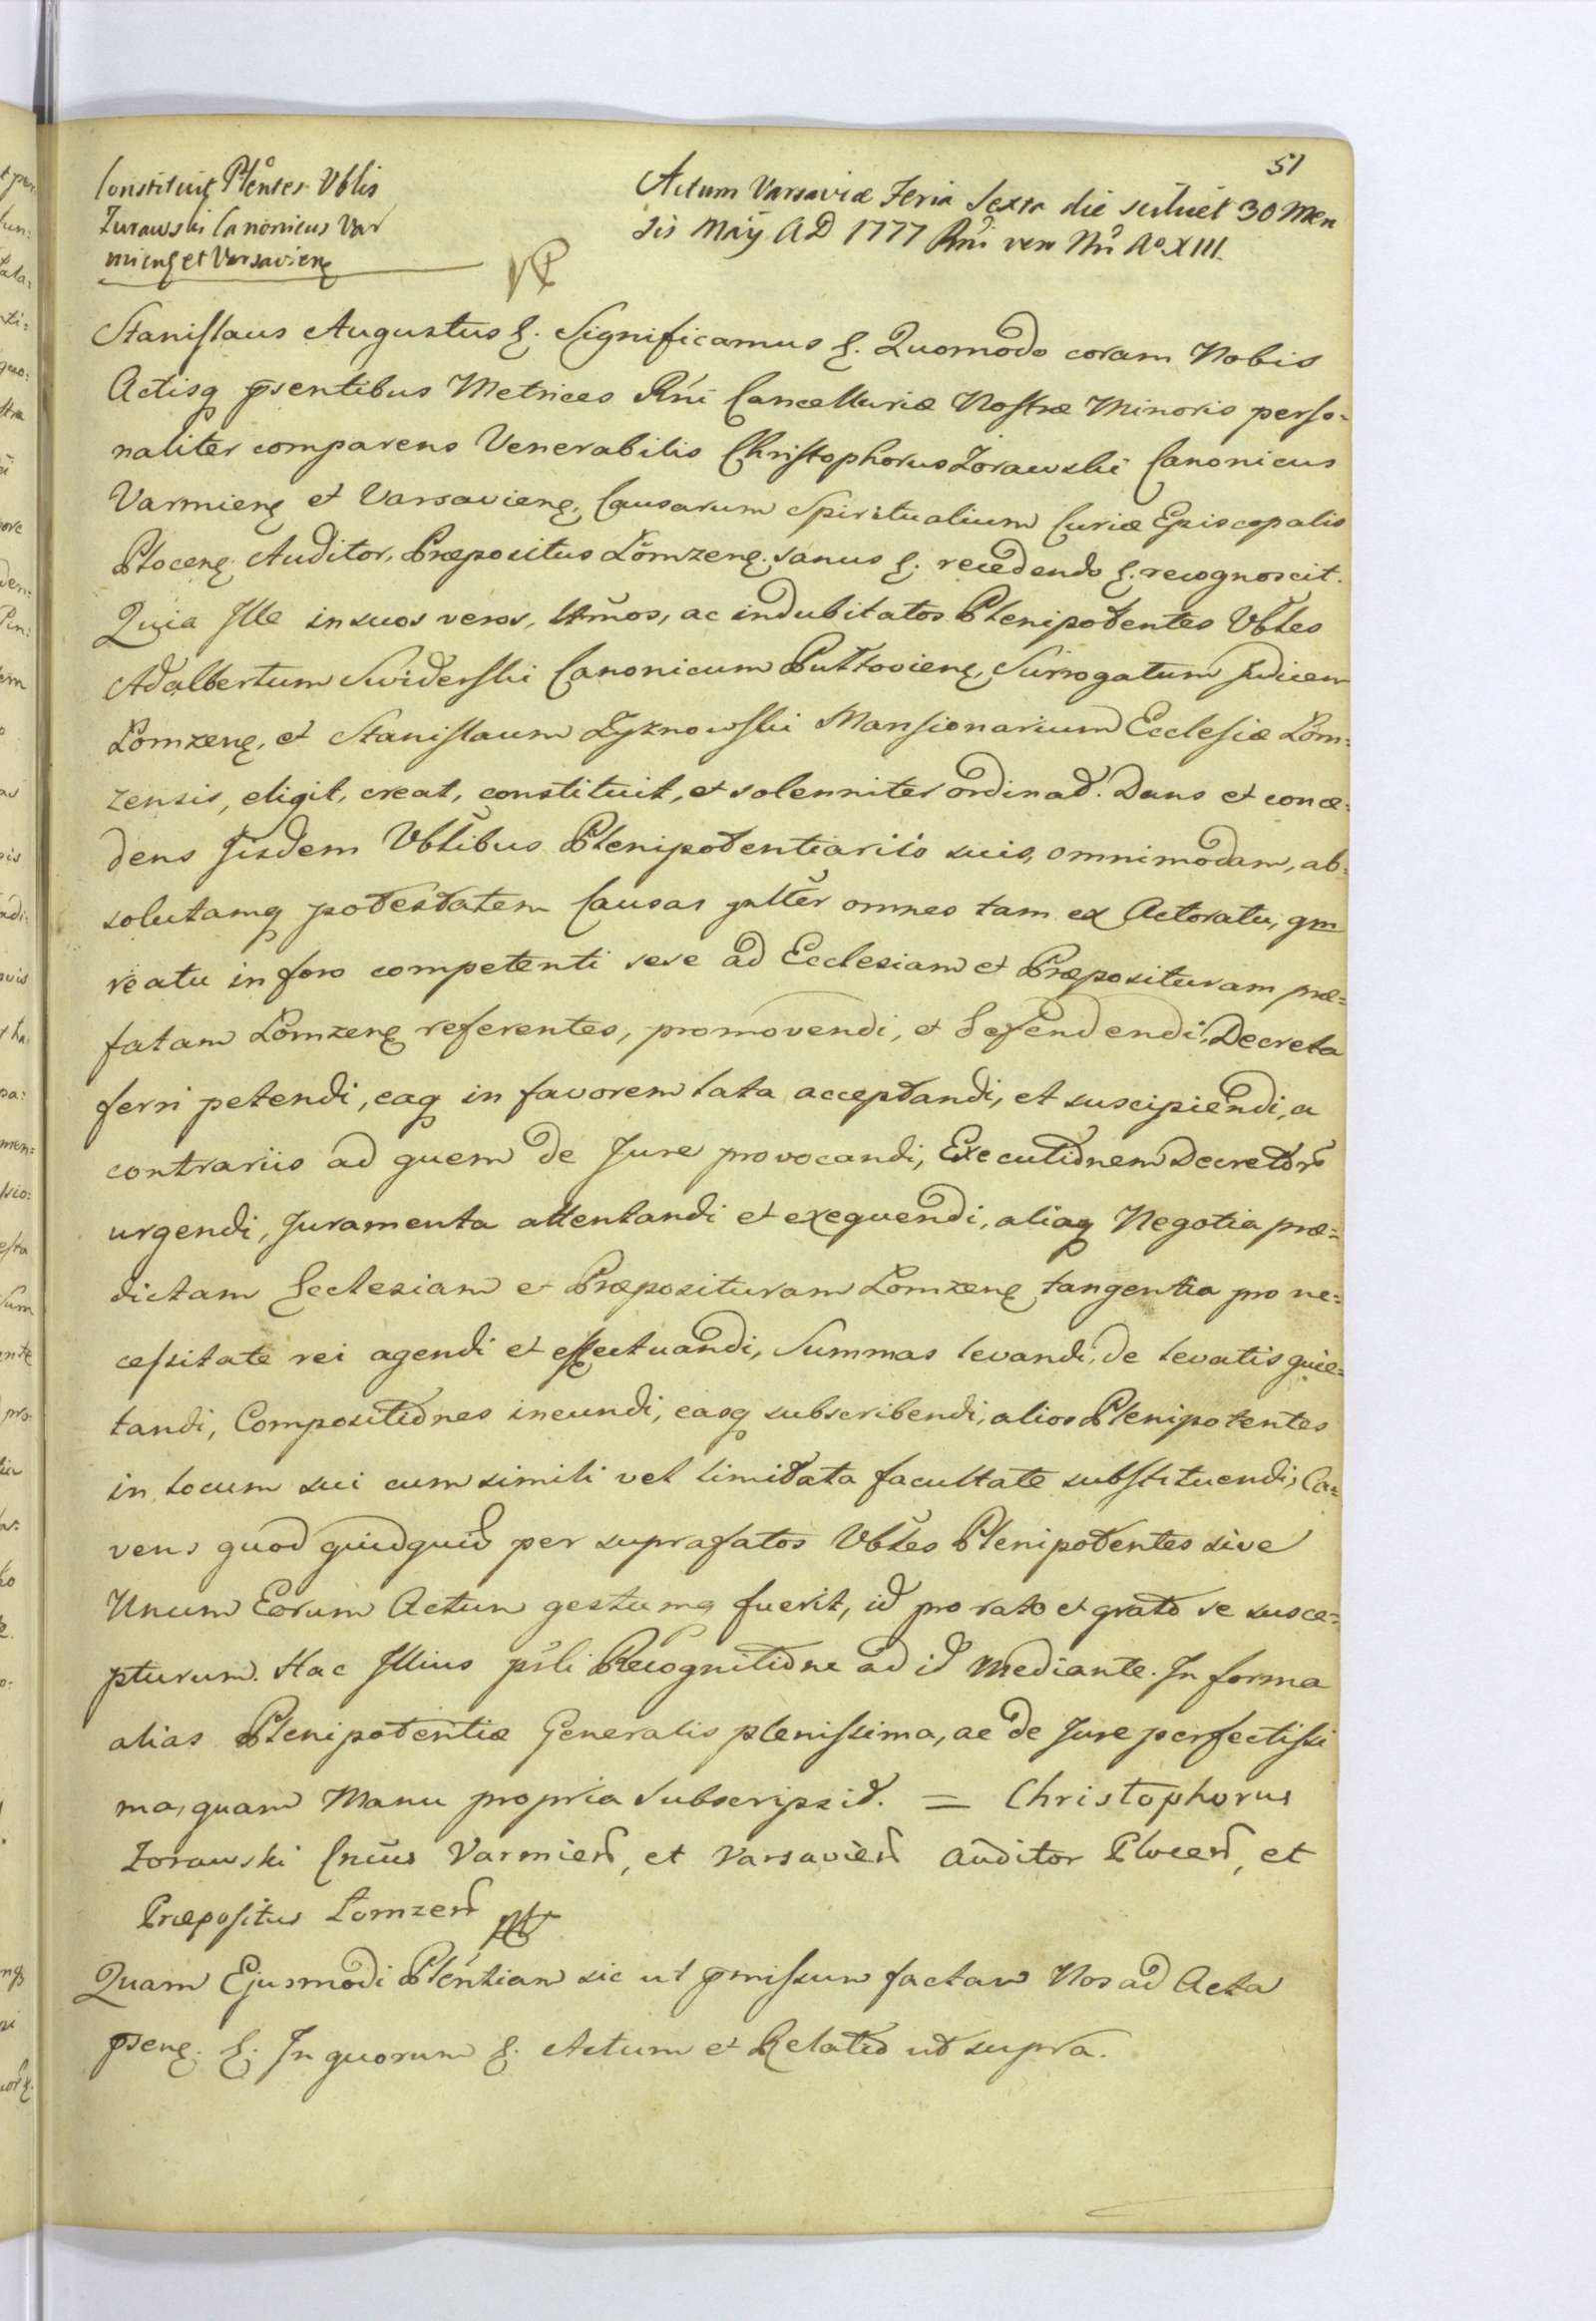 51
Constituit Plentes Vblis
Zurawski Canonicus Var
mieng et Varsavieng
Actum Varsaviæ Feria Sexta die scilicet 30 Men
sis Maÿ AD 1777 Rni vero Nri Ao XIII.
Stanislaus Augustus &. Significamus &. Quomodo coram Nobis
Actisq psentibus Metrices Rni Cancellariæ Nostræ Minoris perso=
naliter comparens Venerabilis Christophorus Zorawski Canonicus
Varmieng et Varsavieng, Causarum Spiritualium Curiæ Episcopalis
Ploceng Auditor, Præpositus Łomzeng. sanus &. recedendo &. recognoscit.
Quia Ille in suos veros, lttmos, ac indubitatos Plenipotentes Vbles
Adalbertum Swiderski Canonicum Pułtovieng, Surrogatum Judicem
Łomzeng, et Stanislaum Zyznowski Mansionarium Ecclesiæ Łom=
zensis, eligit, creat, constituit, et solenniter ordinat. Dans et conce=
dens Jisdem Vblibus Plenipotentiariis suis, omnimodam, ab=
solutamq potestatem Causas gnlter omnes tam ex Actoratu, qm
reatu in foro competenti sese ad Ecclesiam et Præposituram præ=
fatam Łomzeng referentes, promovendi, et defendendi, Decreta
ferri petendi, eaq in favorem lata acceptandi, et suscipiendi, a
contrariis ad quem de Jure provocandi, Executionem Decretor
urgendi, Juramenta attentandi et exequendi, aliaq Negotia præ=
dictam Ecclesiam et Præposituram Łomzeng tangentia pro ne=
cessitate rei agendi et effectuandi, Summas levandi, de levatis quie=
tandi, Compositiones ineundi, easq subscribendi, alios Plenipotentes
in locum sui cum simili vel limitata facultate substituendi, Ca=
vens quod quidquid per suprafatos Vbles Plenipotentes sive
Unum Eorum Actum gestumq fuerit, id pro rato et grato se susce=
pturum. Hac Illius pśli Recognitione ad id mediante. In forma
alias Plenipotentiæ Generalis plenissima, ac de Jure perfectissi
ma, quam Manu propria subscripsit. = Christophorus
Zorawski Cnius Varmien, et Varsavien Auditor Plocen, et
Præpositus Łomzen
Quam Ejusmodi Plentiam sic ut pmissum factam Nos ad Acta
pseng. &. In quorum &. Actum et Relatio ut supra.